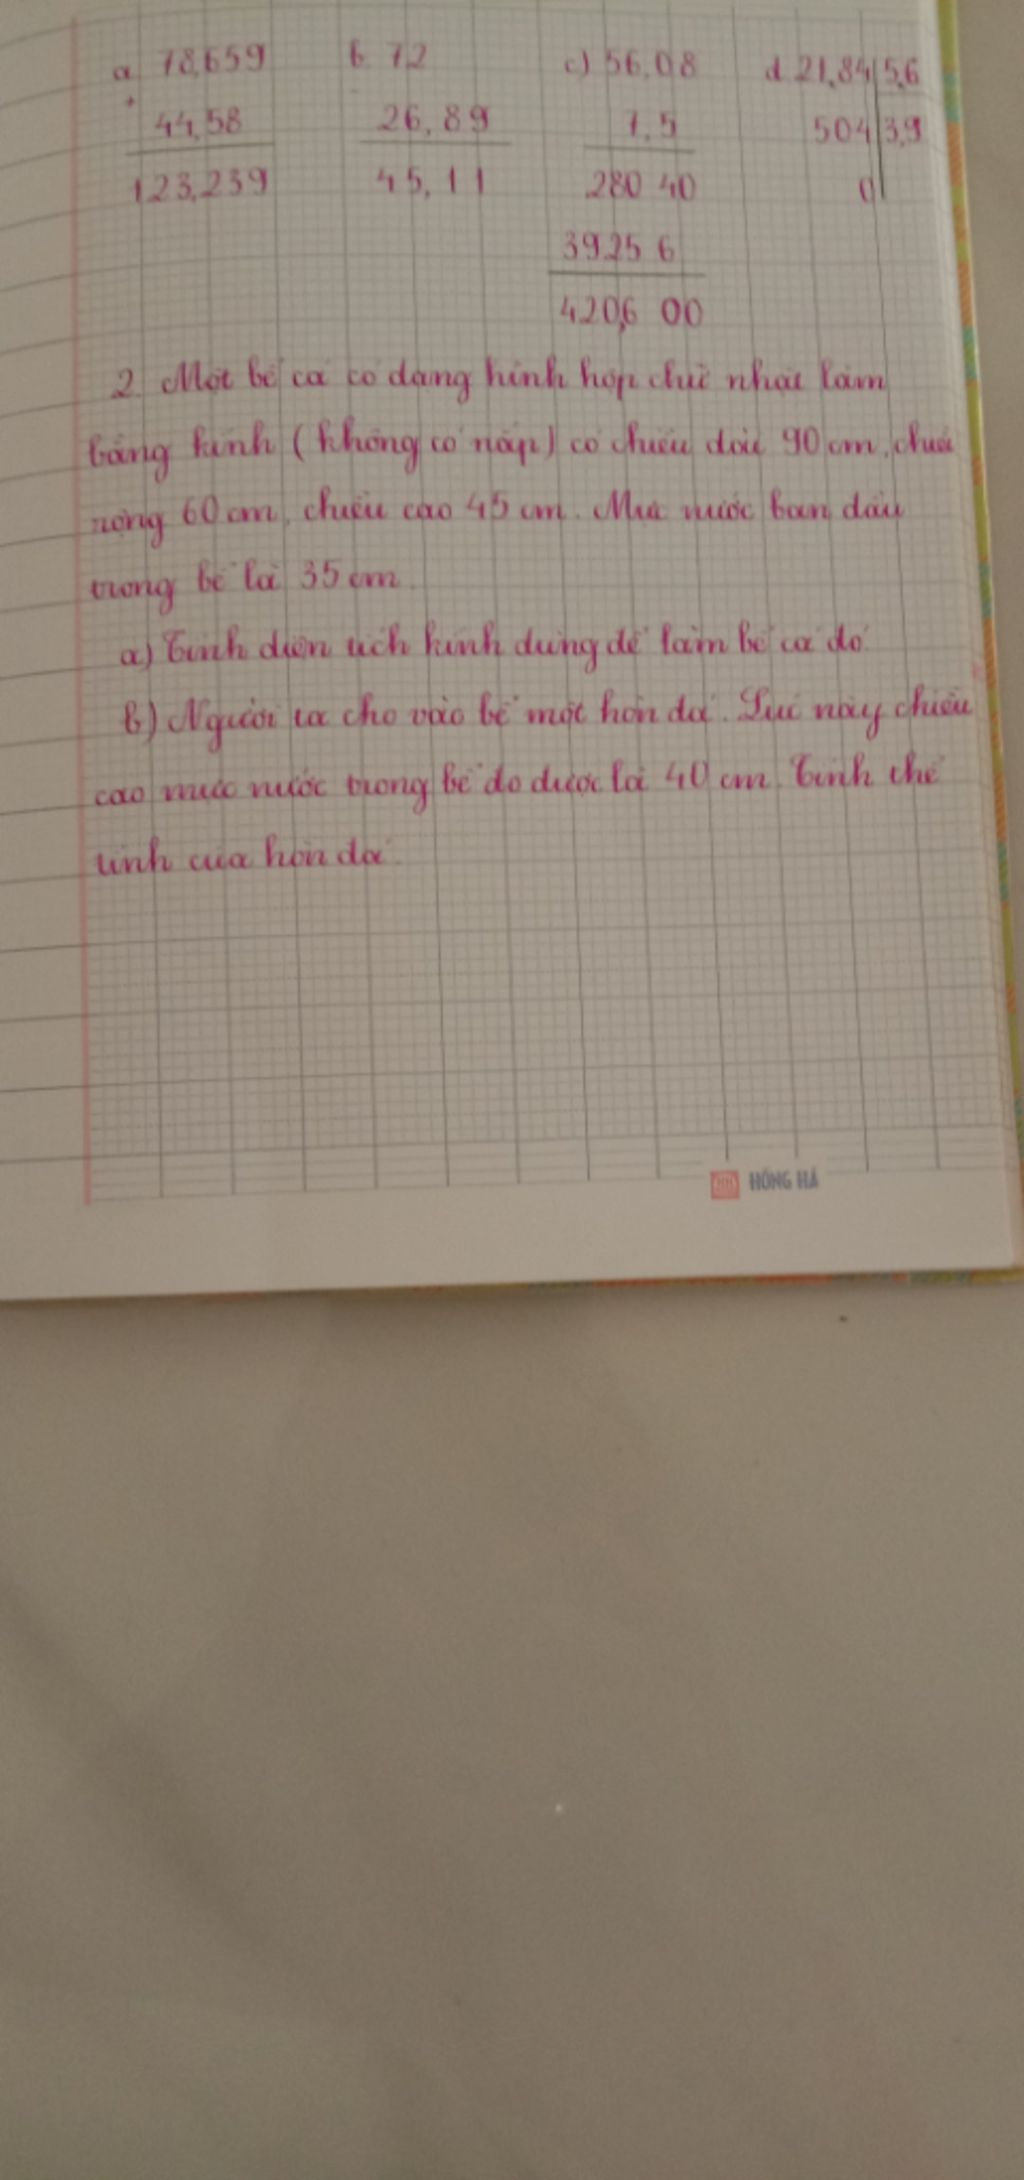 a 78,659 b 72 c) 56,08 d 21,84 5,6
+ 44,58 26,89 7,5 504 3,9
123,239 45,11 280 40 0
3925 6
420,6 00
2. Một bể cá có dạng hình hộp chữ nhật làm
bằng kính (không có nắp) có chiều dài 90 cm, chiều
rộng 60 cm, chiều cao 45 cm. Mực nước ban đầu
trong bể là 35 cm.
a) Tính diện tích kính dùng để làm bể cá đó.
b) Người ta cho vào bể một hòn đá. Lúc này chiều
cao mực nước trong bể đo được là 40 cm. Tính thể
tính của hòn đá.
HỒNG HÀ